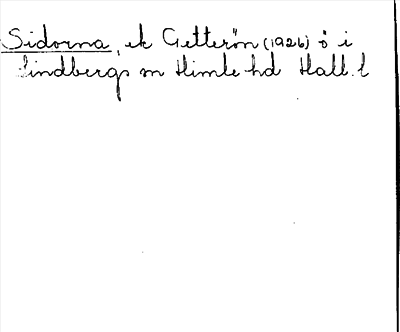 Sidorna, ek Getterön (1926) ö i
Lindbergs sn Himle hd Hall. l